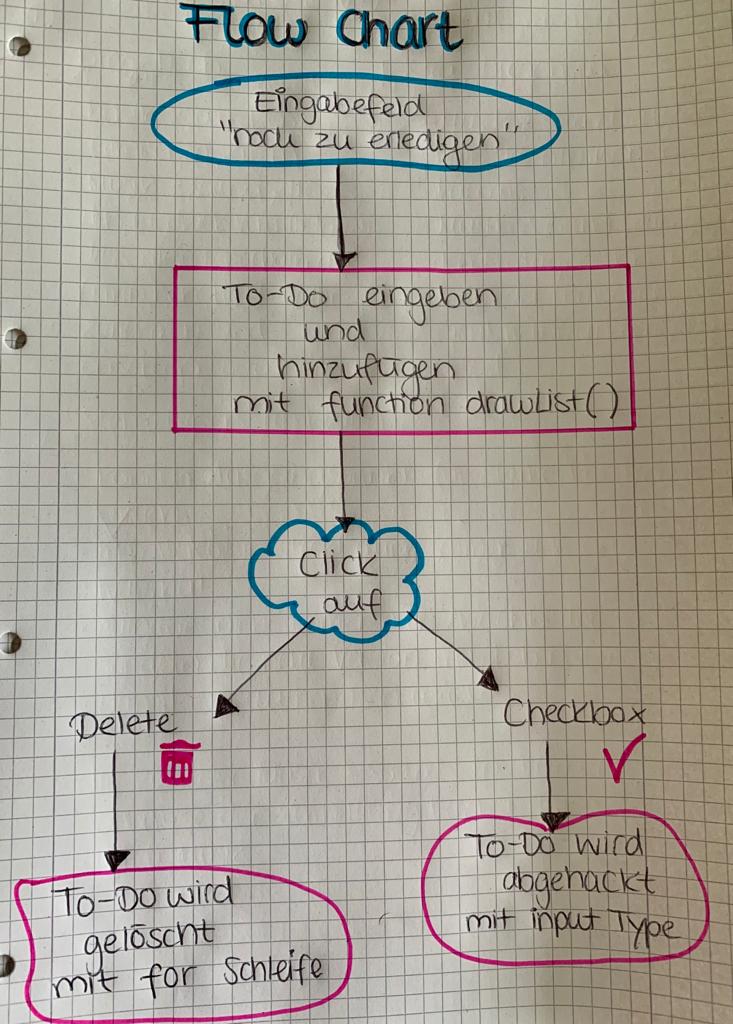 Flow Chart
Eingabefeld
"noch zu erledigen"
To-Do eingeben
und
hinzufügen
mit function drawList()
Click
auf
Delete
Checkbox
To-Do wird
abgehackt
mit input Type
To-Do wird
gelöscht
mit for Schleife